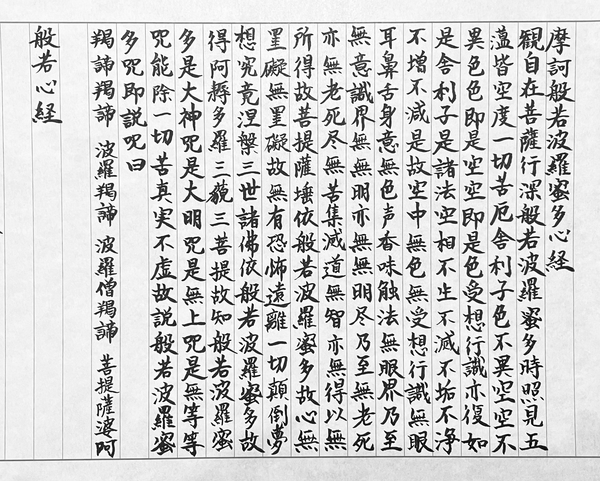 摩訶般若波羅蜜多心経
観自在菩薩行深般若波羅蜜多時照見五
蘊皆空度一切苦厄舎利子色不異空空不
異色色即是空空即是色受想行識亦復如
是舎利子是諸法空相不生不滅不垢不浄
不増不減是故空中無色無受想行識無眼
耳鼻舌身意無色声香味触法無眼界乃至
無意識界無無明亦無無明尽乃至無老死
亦無老死尽無苦集滅道無智亦無得以無
所得故菩提薩埵依般若波羅蜜多故心無
罣礙無罣礙故無有恐怖遠離一切顛倒夢
想究竟涅槃三世諸佛依般若波羅蜜多故
得阿耨多羅三藐三菩提故知般若波羅蜜
多是大神咒是大明咒是無上咒是無等等
咒能除一切苦真実不虚故説般若波羅蜜
多咒即説呪曰
羯諦羯諦 波羅羯諦 波羅僧羯諦 菩提薩婆阿
般若心経